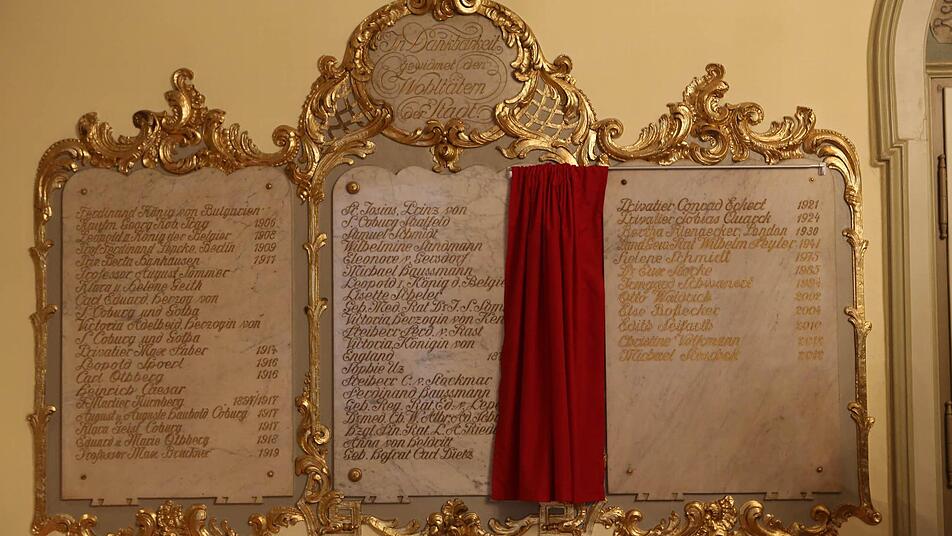 In Dankbarkeit
gewidmet den
Wohltätern
der Stadt
Ferdinand König von Bulgarien
Georg Rob. 1906
Leopold II König der Belgier 1908
Prof. Ferdinand Berlin 1909
Frau Berta Banhausen 1911
Professor August Sommer
Klara u. Helene Geith
Carl Eduard Herzog von
S. Coburg und Gotha
Victoria Adelheid Herzogin von
S. Coburg und Gotha
Privatier Max Faber 1914
Leopold Spoerl 1916
Carl Ollberg 1916
Heinrich Caesar
Nürnberg 1897/1917
August u. Auguste Coburg 1917
Klara Geist Coburg 1917
Eduard u. Marie Ollberg 1918
Professor Max Brückner 1919
Fr. Josias, Prinz von
S. Coburg Saalfeld
Samuel
Wilhelmine Sandmann
Eleonore v. Gersdorf
Michael Haussmann
Leopold I. König d. Belgie
Lisette Scheler
Geh. Med. Rat Dr.
Victoria Herzogin von Ken
Freiherr Ferd. v. Rast
Victoria Königin von
England 18
Sophie Uz
Freiherr C. v. Stockmar
Ferdinand Haussmann
Anna von Holdritt
Geh. Hofrat Carl Dietz
Privatier Conrad Eckert 1921
Privatier Tobias Quarck 1924
Bertha Kliengecker, London 1930
Wilhelm Feyler 1941
Helene Schmidt 1975
Dr Ewe 1985
Irmgard 1994
Otto Waldrich 2002
Else Hoflecker 2004
Edith Seifarth 2010
Christine Völkmann
Michael Stoschek